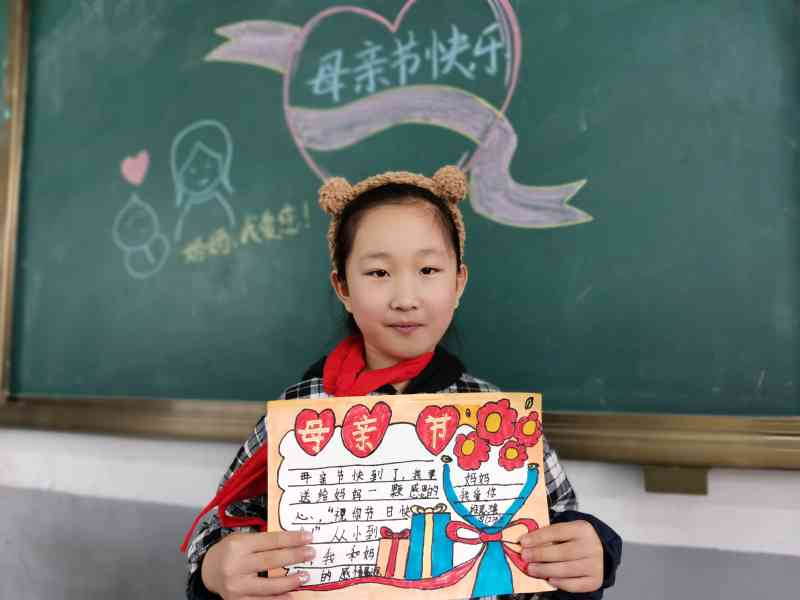 母亲节快乐
妈妈,我爱您!
母亲节
母亲节快到了,我要
送给妈妈一颗感恩的
心,"祝你节日快
"从小到
我和妈
的感情
妈妈
我爱你